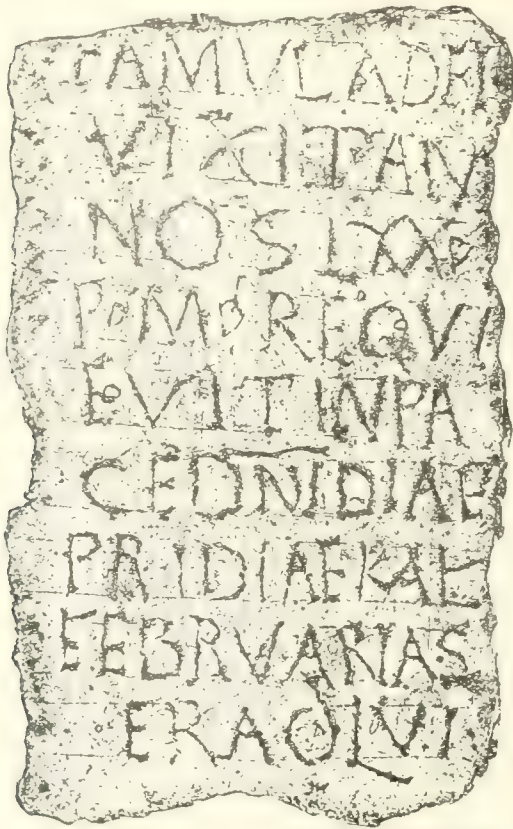 FAMVLA DEI
VIXIT AN
NOS
P M REQVI
EVIT IN PA
CE DNI DIAE
PRIDIAE KAL
FEBRVARIAS
ERA DLVI